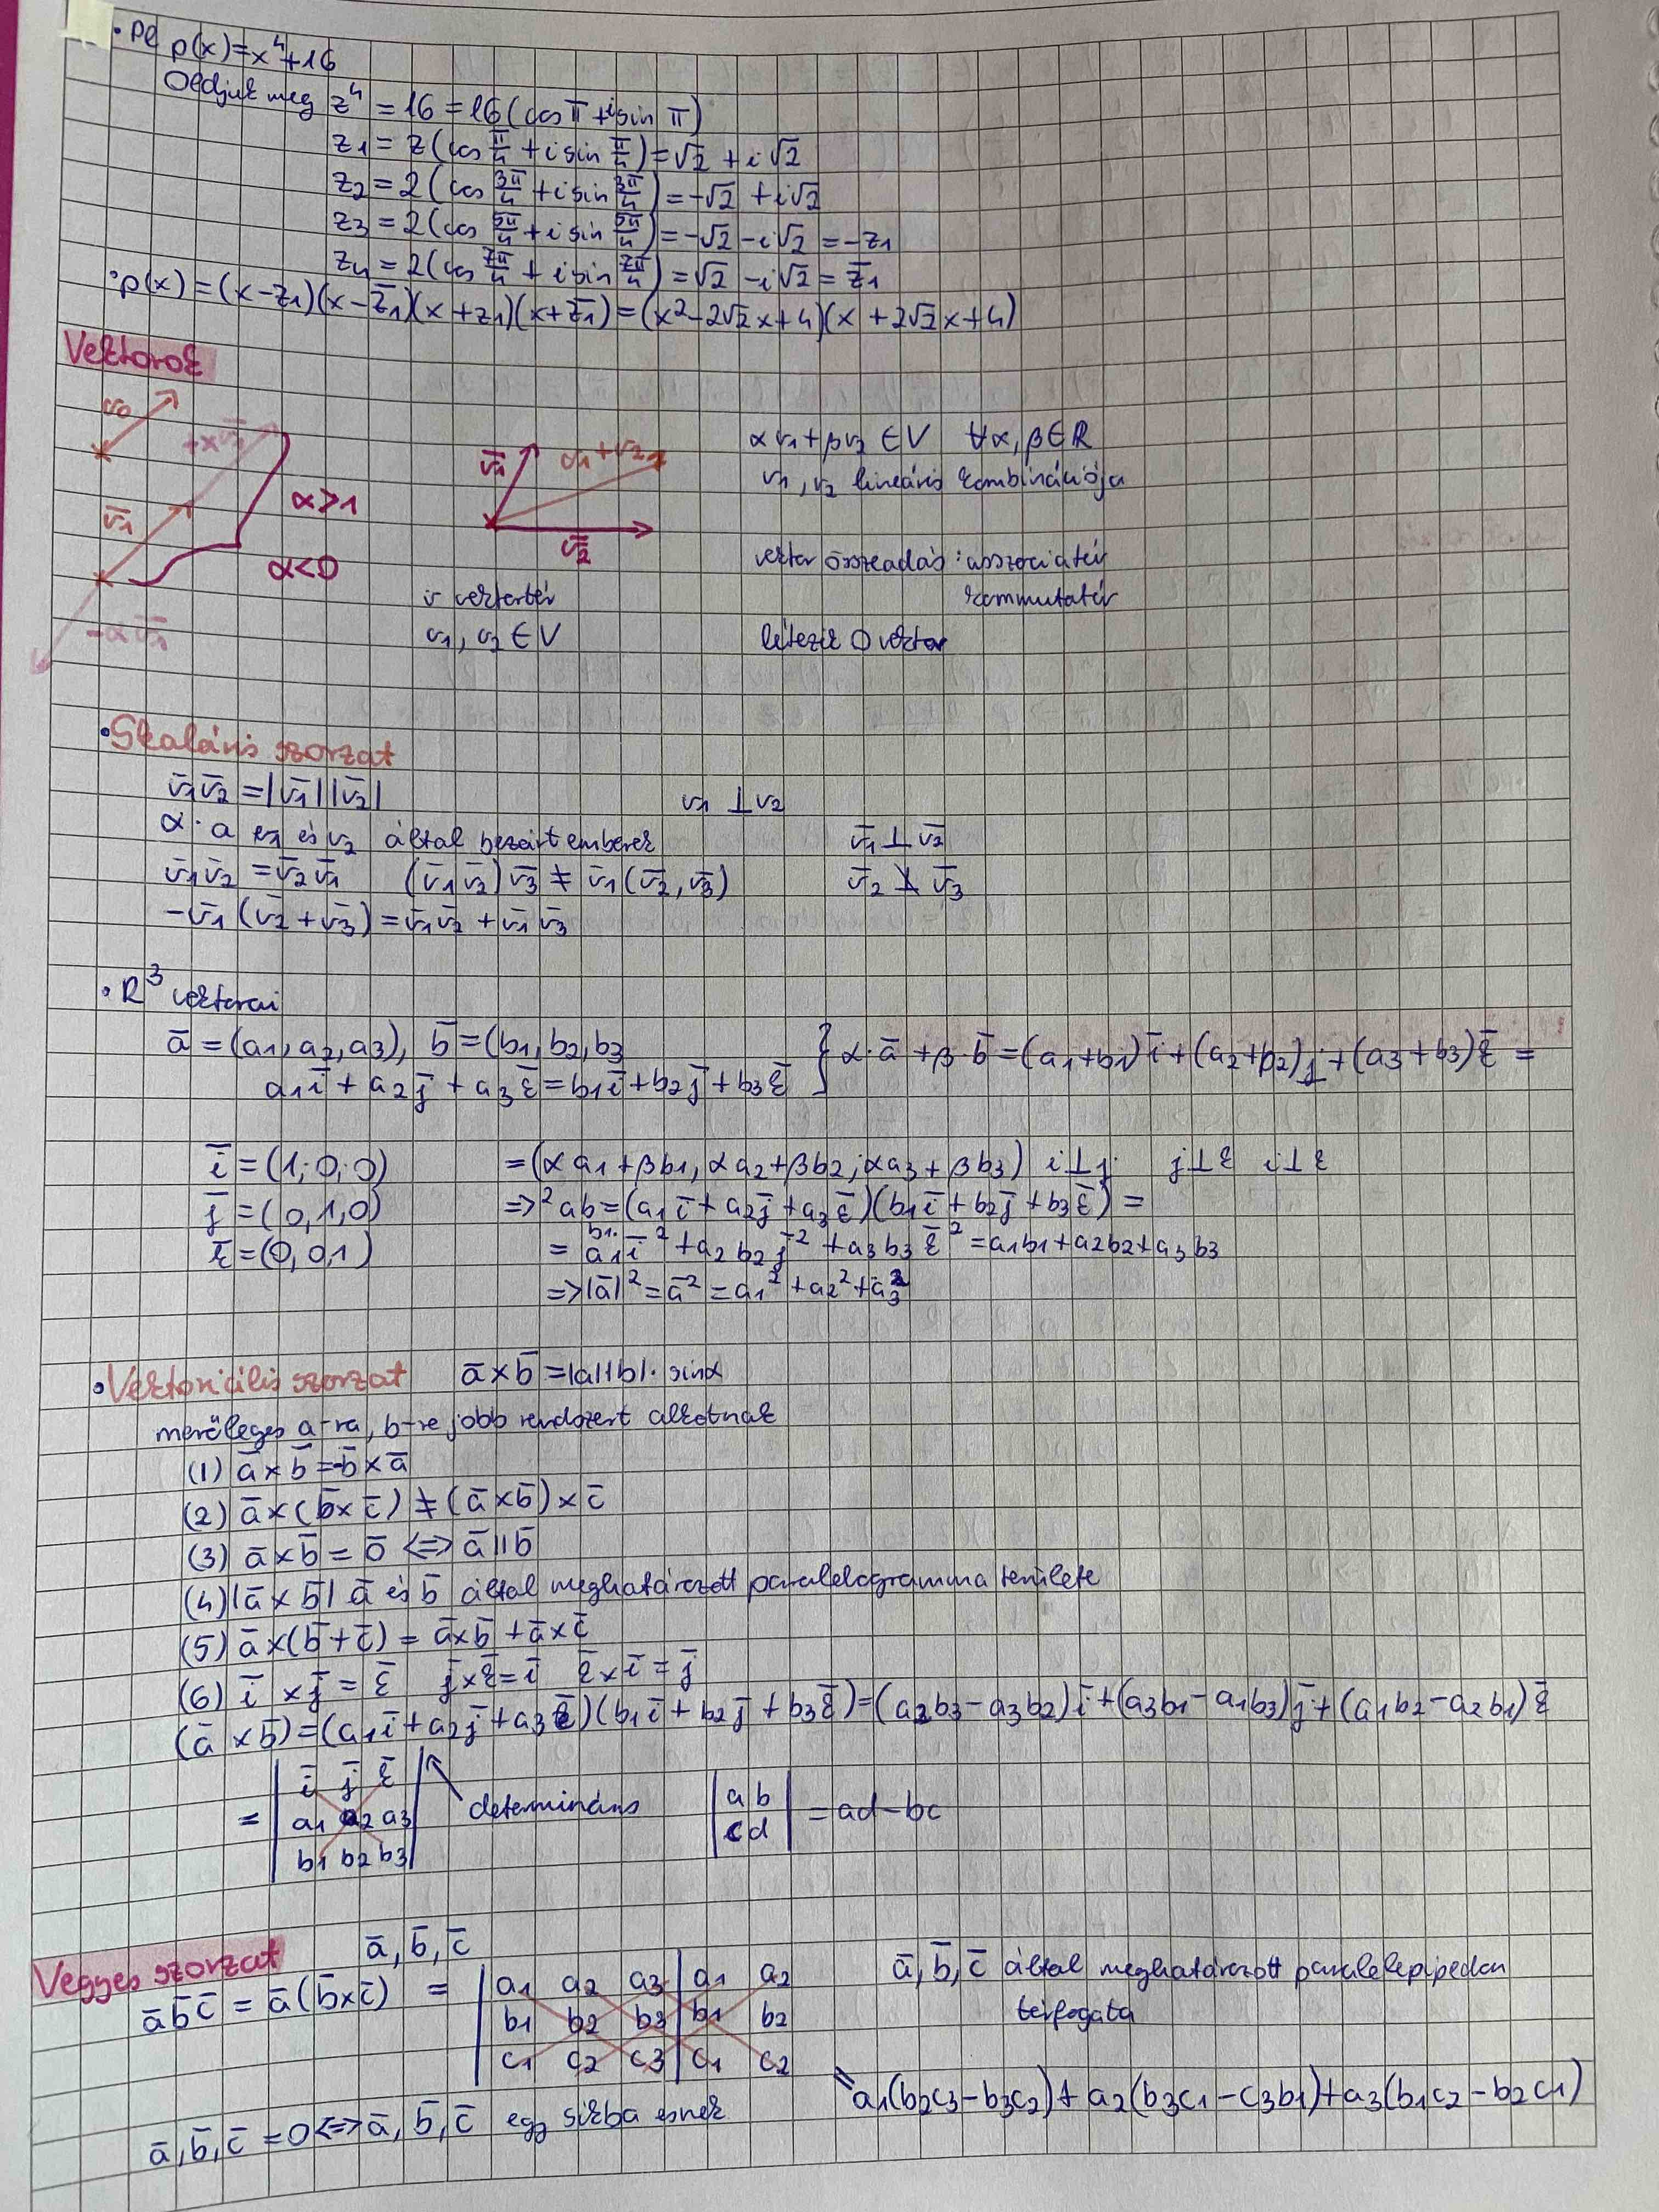 • Pl p(x)=x⁴+16
Oldjuk meg z⁴ = 16 = 16(cos π + i sin π)
z₁ = 2(cos π/4 + i sin π/4) = √2 + i√2
z₂ = 2(cos 3π/4 + i sin 3π/4) = -√2 + i√2
z₃ = 2(cos 5π/4 + i sin 5π/4) = -√2 - i√2 = -z₁
z₄ = 2(cos 7π/4 + i sin 7π/4) = √2 - i√2 = z̄₁
• p(x) = (x-z₁)(x-z̄₁)(x+z₁)(x+z̄₁) = (x²-2√2x+4)(x+2√2x+4)
Vektorok
v₀
+αv̄₁
v̄₁
α>1
α<0
-αv̄₁
v̄₁
v₁+v₂
v̄₂
v vektortér
v₁, v₂ ∈ V
αv₁+βv₂ ∈ V ∀α,β∈R
v₁, v₂ lineáris kombinációja
vektor összeadás: asszociatív
kommutatív
létezik 0 vektor
• Skaláris szorzat
v̄₁v̄₂ = |v̄₁||v̄₂| v₁ ⊥ v₂
α · a v₁ és v₂ által bezárt emberek v̄₁ ⊥ v̄₂
v̄₁v̄₂ = v̄₂v̄₁ (v̄₁v̄₂)v̄₃ ≠ v̄₁(v̄₂, v̄₃) v̄₂ ⊥̸ v̄₃
-v̄₁(v̄₂+v̄₃) = v̄₁v̄₂ + v̄₁v̄₃
• R³ vektorai
ā = (a₁, a₂, a₃), b̄ = (b₁, b₂, b₃ } α·ā + β·b̄ = (a₁+b₁)ī + (a₂+b₂)j + (a₃+b₃)k̄ =
a₁ī + a₂j̄ + a₃k̄ = b₁ī + b₂j̄ + b₃k̄
ī = (1; 0; 0) = (αa₁+βb₁, αa₂+βb₂; αa₃+βb₃) i⊥j j⊥k i⊥k
j̄ = (0, 1, 0) =>² ab = (a₁ī + a₂j̄ + a₃k̄)(b₁ī + b₂j̄ + b₃k̄) =
k̄ = (0, 0, 1) = a₁b₁·ī² + a₂b₂j̄² + a₃b₃k̄² = a₁b₁+a₂b₂+a₃b₃
=> |ā|² = ā² = a₁² + a₂² + a₃²
• Vektoriális szorzat ā×b̄ = |a||b|· sinα
merőleges a-ra, b-re jobb rendszert alkotnak
(1) ā×b̄ = -b̄×ā
(2) ā×(b̄×c̄) ≠ (ā×b̄)×c̄
(3) ā×b̄ = 0̄ <=> ā∥b̄
(4) |ā×b̄| ā és b̄ által meghatározott paralelogramma területe
(5) ā×(b̄+c̄) = ā×b̄ + ā×c̄
(6) ī×j̄ = k̄ j̄×k̄ = ī k̄×ī = j̄
(ā×b̄) = (a₁ī+a₂j̄+a₃k̄)(b₁ī+b₂j̄+b₃k̄) = (a₂b₃-a₃b₂)ī+(a₃b₁-a₁b₃)j̄+(a₁b₂-a₂b₁)k̄
| ī j̄ k̄ |
= | a₁ a₂ a₃ | determináns | a b | = ad-bc
| b₁ b₂ b₃ | | c d |
Vegyes szorzat ā, b̄, c̄
āb̄c̄ = ā(b̄×c̄) = | a₁ a₂ a₃ | a₁ a₂ ā, b̄, c̄ által meghatározott paralelepipedon
| b₁ b₂ b₃ | b₁ b₂ térfogata
| c₁ c₂ c₃ | c₁ c₂
= a₁(b₂c₃-b₃c₂)+a₂(b₃c₁-c₃b₁)+a₃(b₁c₂-b₂c₁)
ā, b̄, c̄ = 0 <=> ā, b̄, c̄ egy síkba esnek